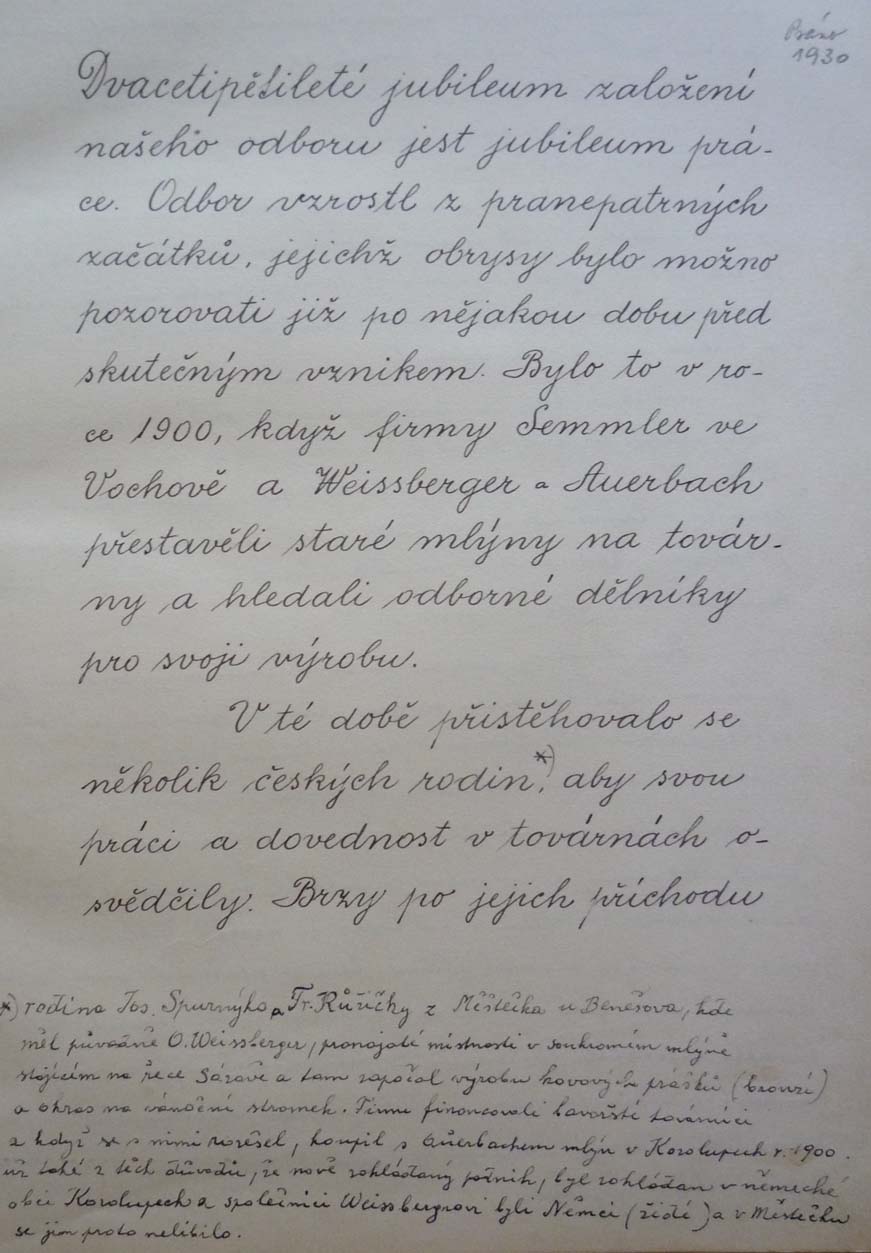 Psáno
1930
Dvacetipětileté jubileum založení
našeho odboru jest jubileum prá-
ce. Odbor vzrostl z pranepatrných
začátků, jejichž obrysy bylo možno
pozorovati již po nějakou dobu před
skutečným vznikem. Bylo to v ro-
ce 1900, když firmy Semmler ve
Vochově a Weissberger a Auerbach
přestavěli staré mlýny na továr-
ny a hledali odborné dělníky
pro svoji výrobu.
V té době přistěhovalo se
několik českých rodin*), aby svou
práci a dovednost v továrnách o-
svědčily. Brzy po jejich příchodu
*) rodina Jos. Spurnýho a Fr. Růžičky z Městečka u Benešova, kde
měl původně O. Weissberger, pronajaté místnosti v soukromém mlýně
stojícím na řece Sázavě a tam započal výrobu kovových prášků (bronzí)
a okras na vánoční stromek. Firmu financovali bavorští továrníci
a když se s nimi rozešel, koupil s Auerbachem mlýn v Kozolupech r. 1900.
už také z těch důvodů, že nově zakládaný podnik, byl zakládan v německé
obci Kozolupech a společníci Weissbergrovi byli Němci (židé) a v Městečku
se jim proto nelíbilo.